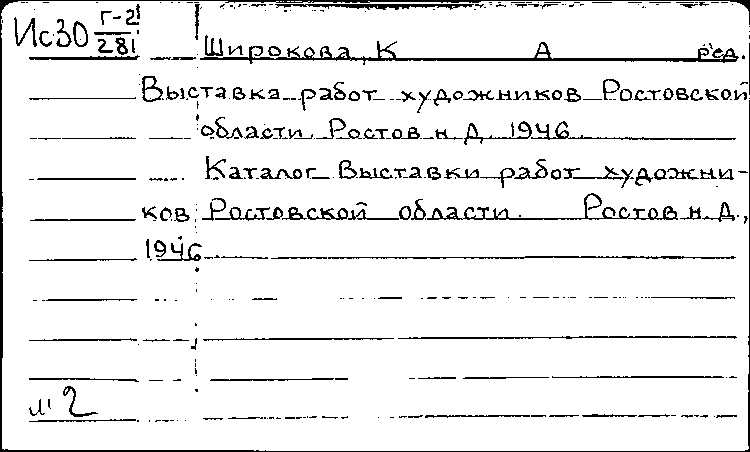 Ис30 Г-2/281
Широкова, К А ред.
Выставка работ художников Ростовской
области. Ростов н. Д. 1946.
Каталог Выставки работ художни-
ков Ростовской области. Ростов н. Д.,
1946
2